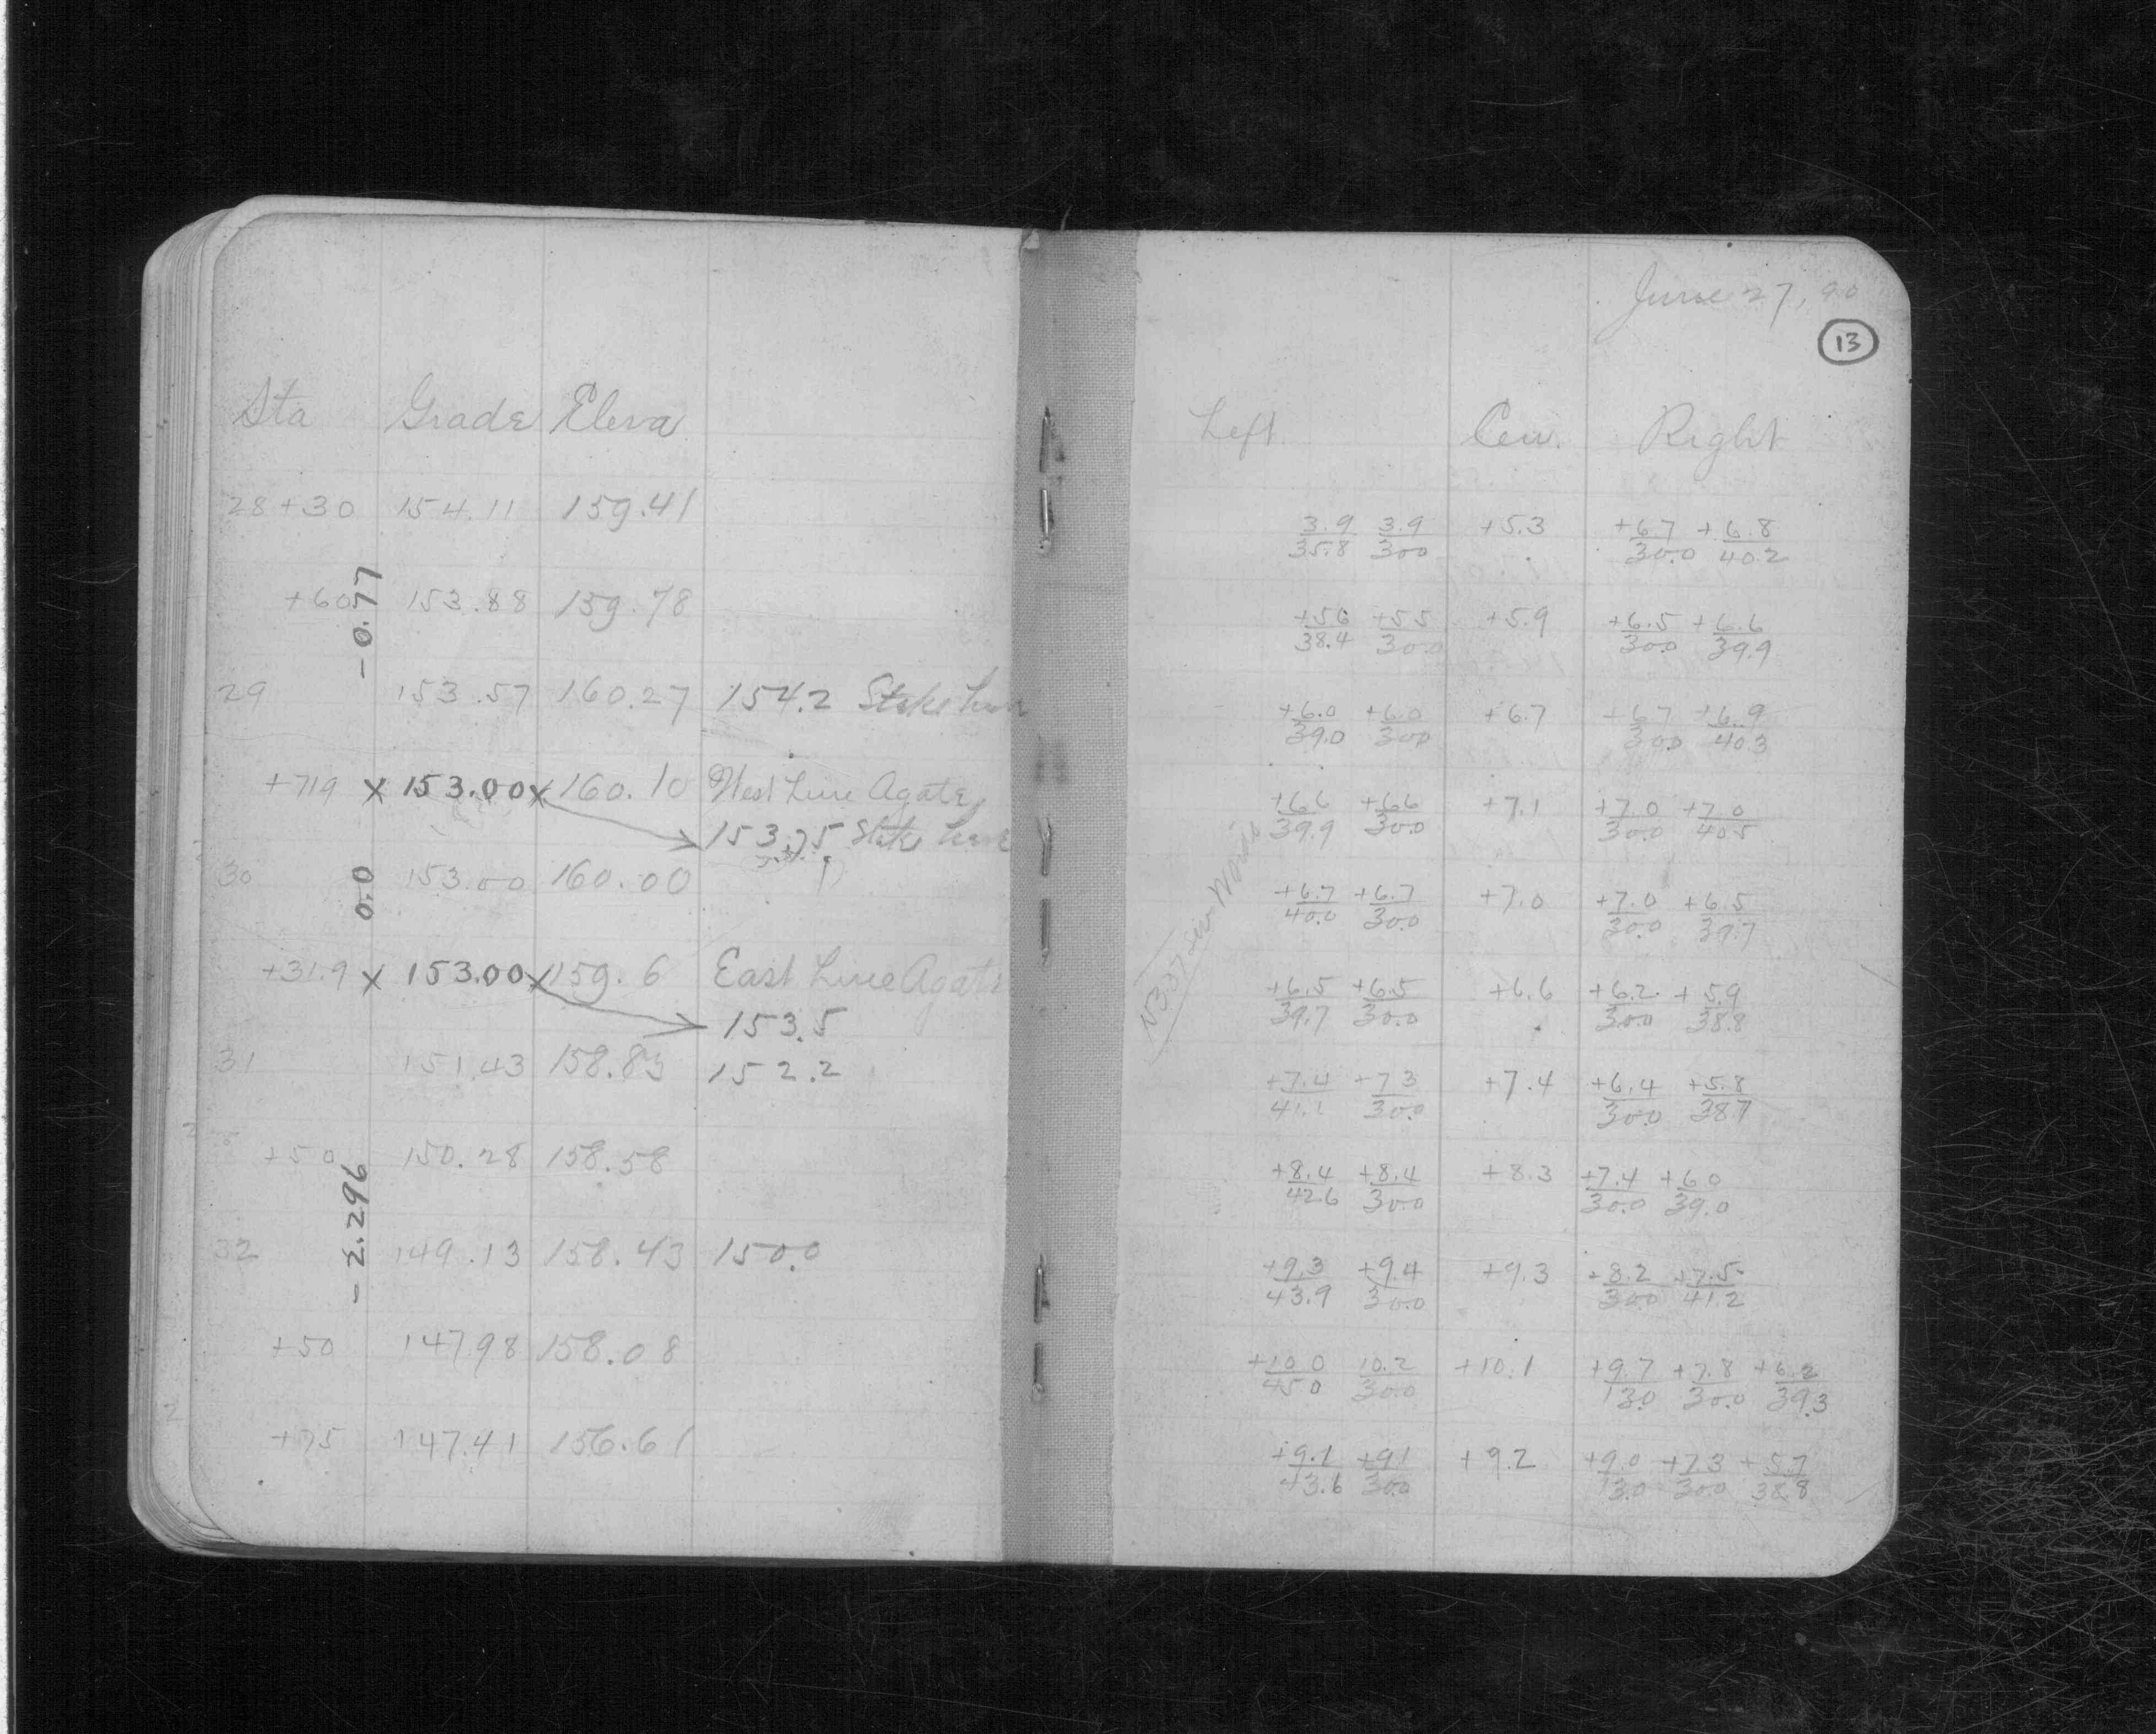 Sta Grade Eleva
28+30 154.11 159.41
+60 153.88 159.78
-0.77
29 153.57 160.27 154.2 Stake
+71.9 x 153.00 x 160.10 West Line Agate
153.75 Stake
30 153.00 160.00
0.0
+31.9 x 153.00 x 159.6 East Line Agate
153.5
31 151.43 158.83 152.2
+50 150.28 158.58
-2.296
32 149.13 158.43 150.0
+50 147.98 158.08
+75 147.41 156.61
June 27, 90
13
Left Cen. Right
3.9 3.9 +5.3 +6.7 +6.8
35.8 30.0 30.0 40.2
+5.6 +5.5 +5.9 +6.5 +6.6
38.4 30.0 30.0 39.9
+6.0 +6.0 +6.7 +6.7 +6.9
39.0 30.0 30.0 40.3
+6.6 +6.6 +7.1 +7.0 +7.0
39.9 30.0 30.0 40.5
+6.7 +6.7 +7.0 +7.0 +6.5
40.0 30.0 30.0 39.7
+6.5 +6.5 +6.6 +6.2 +5.9
39.7 30.0 30.0 38.8
+7.4 +7.3 +7.4 +6.4 +5.8
41.1 30.0 30.0 38.7
+8.4 +8.4 +8.3 +7.4 +6.0
42.6 30.0 30.0 39.0
+9.3 +9.4 +9.3 +8.2 +7.5
43.9 30.0 30.0 41.2
+10.0 10.2 +10.1 +9.7 +7.8 +6.2
45.0 30.0 13.0 30.0 39.3
+9.1 +9.1 +9.2 +9.0 +7.3 +5.7
43.6 30.0 13.0 30.0 38.8